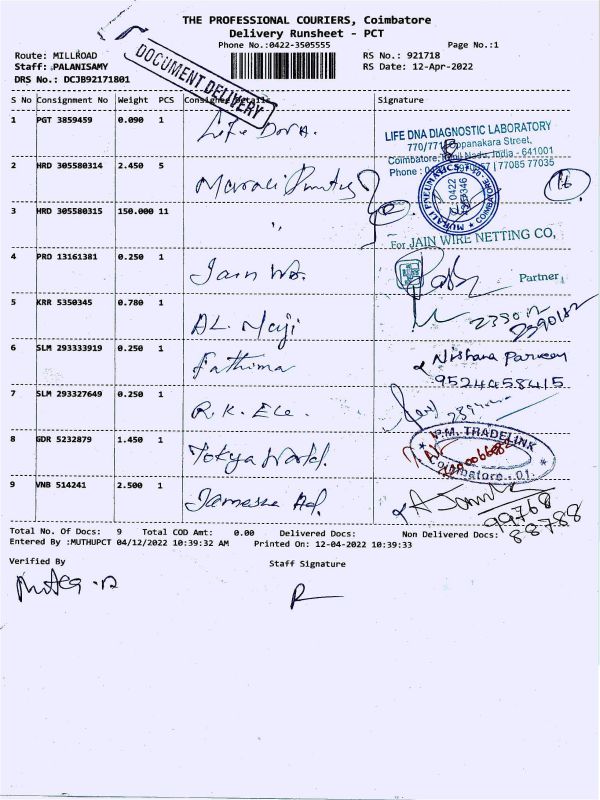 THE PROFESSIONAL COURIERS, Coimbatore
Delivery Runsheet - PCT
Phone No.:0422-3505555
Page No.:1
Route: MILLROAD
RS No.: 921718
Staff: PALANISAMY
RS Date: 12-Apr-2022
DRS No.: DCJB92171801
DOCUMENT DELIVERY
S No Consignment No Weight PCS Consignee Details Signature
1 PGT 3859459 0.090 1 Life Dona.
LIFE DNA DIAGNOSTIC LABORATORY
770/771 Oppanakara Street,
Coimbatore, Tamil Nadu, India - 641001
Phone : 57 | 77085 77035
2 HRD 305580314 2.450 5
MURALI PNEUMATICS COIMBATORE
0422
16
3 HRD 305580315 150.000 11 "
For JAIN WIRE NETTING CO,
4 PRD 13161381 0.250 1 Jain
Partner
5 KRR 5350345 0.780 1 AL.
2390182
6 SLM 293333919 0.250 1 Fathima
Nishana Parveen
9524458415
7 SLM 293327649 0.250 1 R.K. Ele.
8 GDR 5232879 1.450 1 Tokya World.
P.M. TRADELINK
Coimbatore - 01.
9 VNB 514241 2.500 1
99768
88788
Total No. Of Docs: 9 Total COD Amt: 0.00 Delivered Docs: Non Delivered Docs:
Entered By :MUTHUPCT 04/12/2022 10:39:32 AM Printed On: 12-04-2022 10:39:33
Verified By
Staff Signature